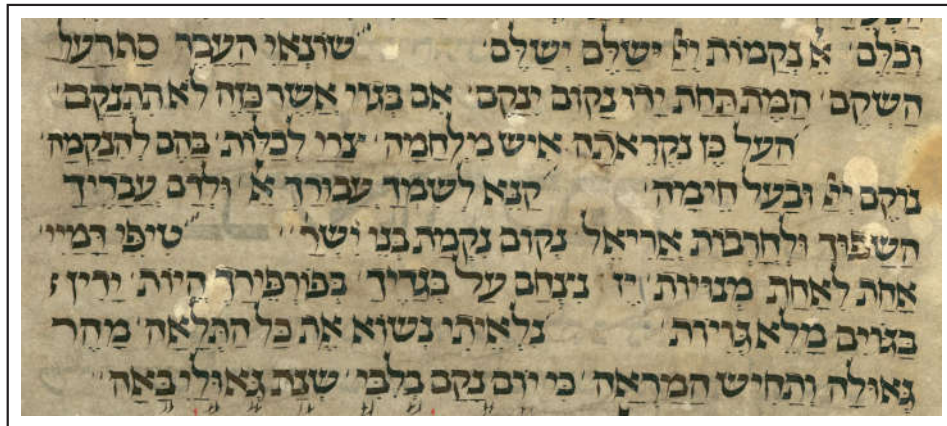 וכלם א נקמות יי ישלם ישלם שונאי העבר סתרעל
השקם המת תחת ידו נקום ינקם אם בגוי אשר כזה לא תתנקם
העל כן נקראתה איש מילחמה יצרי לכלות בהם להנקמה
נוקם יי ובעל חימה קנא לשמך עבורך א ולדם עבדיך
השפוך ולחרבות אריאל נקום נקמת בני ישר טיפי דמיי
אחת לאחת מנויות יז ניצחם על בגדיך בפורפורך היות ידין
בגוים מלא גויות נלאיתי נשוא את כל התלאה מהר
גאולה ותחיש המראה כי יום נקם בלבי שנת גאולי באה